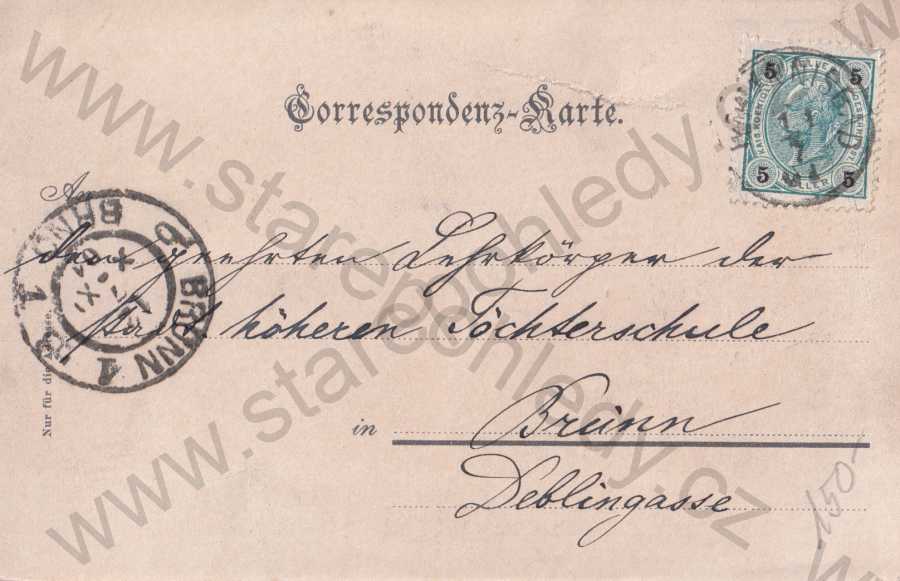 Correspondenz-Karte.
An
den geehrten Lehrkörper der
stadt. höheren Töchterschule
in Brünn
Deblingasse
Nur für die Adresse.
BRÜNN 1
BRÜNN 1
5 5
5 5
HELLER
150-
www.starepohledy.cz